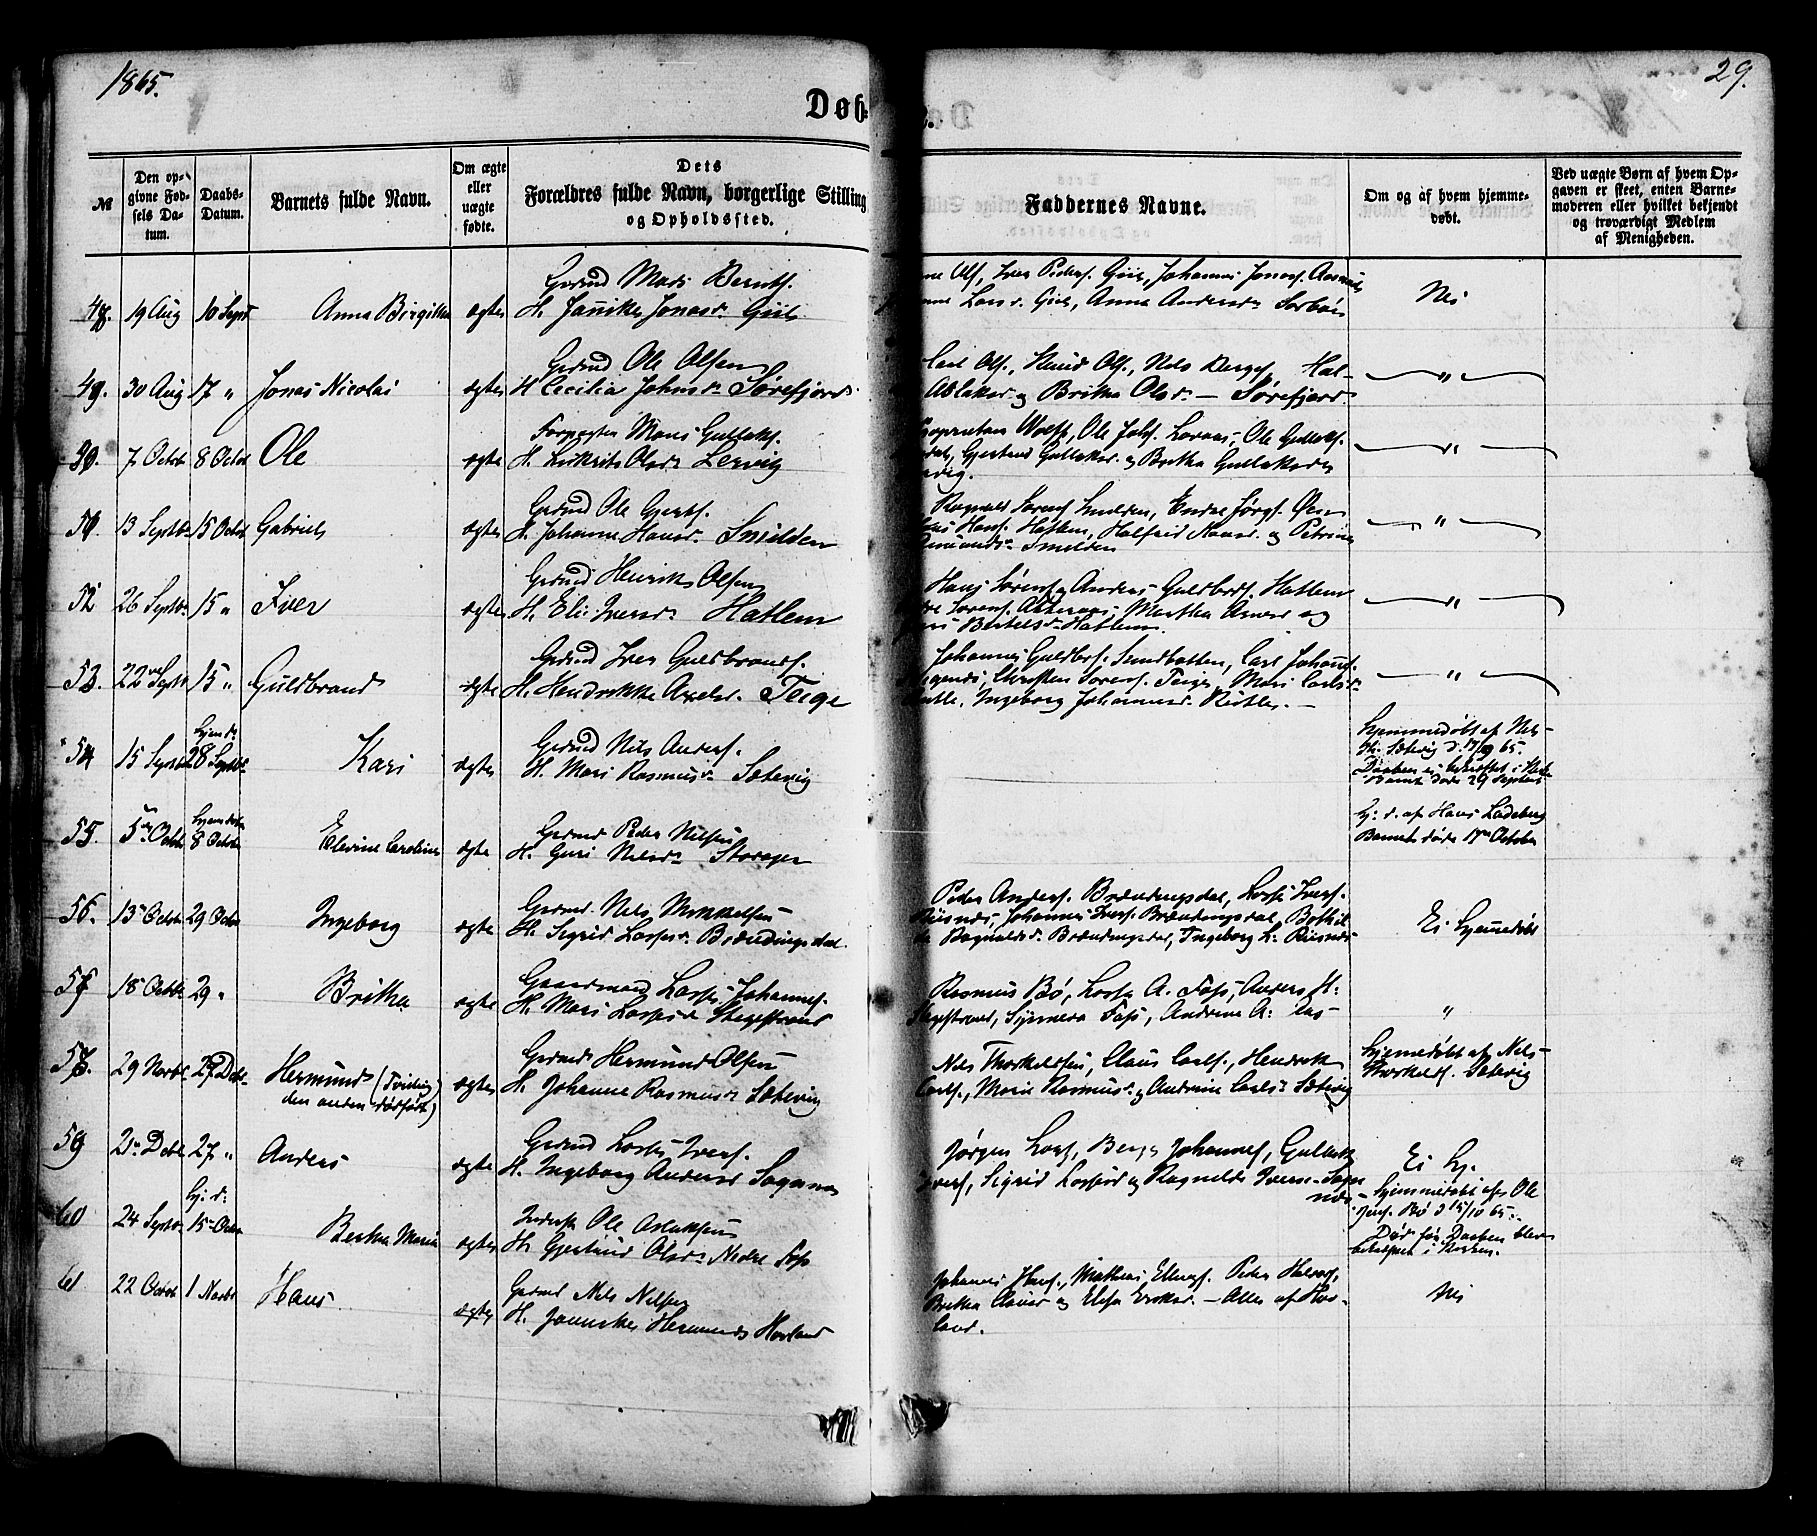 1865.
29.
Døb
Døbte.
№
Den opgivne Fødsels Datum.
Daabs-Datum.
Barnets fulde Navn.
Om ægte eller uægte fødte.
Dets
Forældres fulde Navn, borgerlige Stilling
og Opholdssted.
Faddernes Navne.
Om og af hvem hjemmedøbt.
Ved uægte Børn af hvem Opgaven er skeet, enten Barnemoderen eller hvilket bekjendt og troværdigt Medlem af Menigheden.
48. 19 Aug 10 Sept Anna Birgitta ægte
Grdmd Mads Bernts.
H. Jannike Jonasd.
Olss, Iver Peders. Johannes Jonass.
Larsd. Anna Andersd. Sørbøe
Nei
49. 30 Aug 17 " Jonas Nicolai ægte
Grdmd Ole Olsen
H Cecilia Johnsd. Sørefjord
Carl Ols., Knud Ols., Nels
Aslaksd. og Britha Olsd. — Sørefjord
"
50. 7 Octob 8 Octob Ole ægte
Forpagter Mons Gullaks.
H. Olsd. Lervig
Proprietær Wolff, Ole Ole Gullaks.
Gjertrud Gullaksd. og Britha Gullaksdr
"
51. 13 Septbr 15 Octob Gabriel ægte
Grdmd Ole Gjerts.
H. Johanne Hansd. Smilden
Ragnald Sørens. Smilden, Endre Jørgs.
Hans. Hatlem, Halfrid Hansd. og Petrine
Smilden
"
52 26 Septbr 15 " Iver ægte
Grdmd Henrik Olsen
H. Eli Iversd. Hatlem
Hans Sørens. og Anders Guldbrds. Hatlem
Sørens. Martha Arnesd og
Bertelsd. Hatlem
"
53. 22 Septr 15 " Guldbrand ægte
Grdmd Iver Guldbrands.
H. Hendrikke Axelsd. Teige
Johannes Guldbrs. Indrebotten, Carl Johans.
Christen Sørens. Teige, Mari Carlsdr
Ingeborg Johannesd.
"
54 15 Septbr hjemd. 28 Septbr Kari ægte
Grdmd Nils Anders.
H. Mari Rasmusdr Sætevig
Hjemmedøbt af Nels
Sætevig d. 65.
Daaben ei bekræftet i Kirke
Barnet døde 29 Septembr
55. 5 Octob hjemdøbt 8 Octob Elevine Caroline ægte
Grdmd Peder Nilsen
H. Guri Nelsdr Storager
Hj: d. af Hans Ladeberg
Barnet døde 17 October
56. 13 Octob 29 Octob Ingeborg ægte
Grdmd. Nels Mikkelsen
H. Sigrid Lassesd. Brændingsdal
Peder Anders. Brændingsdal, Lasse Ivers.
Risnes, Johannes Ivers. Brændingsdal, Bothil-
da Ragnaldsd. Brændingsdal, Ingeborg L: Risnes
Ei hjemmedøbt
57 18 Octbr 29 " Britha ægte
Gaardmand Lasse Johannes.
H. Mari Lassesdr Stagestrand
Rasmus Bø, Lasse A. Foss, Anders H:
Stagestrand, Synneva Foss, Andrine A:
"
58. 29 Novbr 27 Decbr Hermund (Tvilling
den anden dødfødt) ægte
Grdmd Hermund Olsen
H. Johanne Rasmusdr Sætevig
Nils Thorkeldsen, Claus Carls., Hendrik
Carls., Marie Rasmusd. og Andrine Carlsdr Sætevig
Hjemmedøbt af Nels
Thorkelds. Sætevig
59 21 Decbr 27 " Anders ægte
Grdmd Lasse Ivers.
H. Ingeborg Andersd Sognnes
Jørgen Lass., Berge Johannes., Gullak
Ivers., Sigrid Lassesd og Ragnilde Iversd. Sogn-
næs
Ei hj.
60 24 Septbr hj: d: 15 Octbr Bertha Maria ægte
Inderst Ole Aslaksen
H. Gjertrud Olsdr Nedre Foss
Hjemmedøbt af Ole
Jens. Bø d 15/10 65.
Død før Daaben blev
bekræftet i Kirken.
61 22 Octob 1 Novbr Hans ægte
Grdmd Nels Nelsen
H. Jannike Hermunds Hovland
Johannes Hans., Mathias Ellings. Peder Halvors.
Britha Clausd og Elisa Eriksd. — Alle af Hov-
land.
Nei